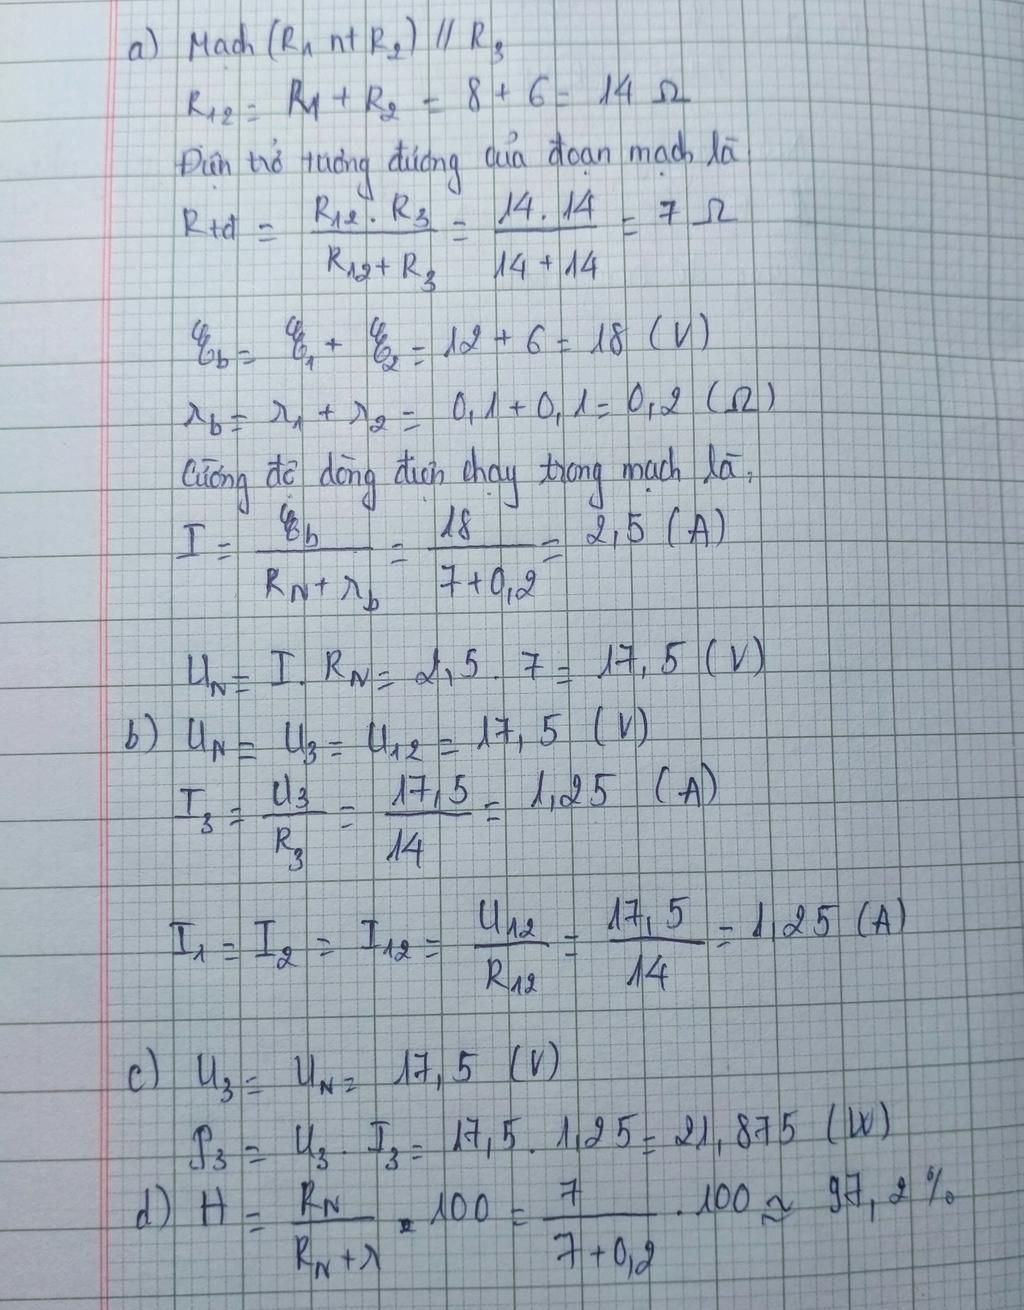 a) Mạch (R1 nt R2) // R3
R12 = R1 + R2 = 8 + 6 = 14 Ω
Điện trở tương đương của đoạn mạch là
Rtđ = R12 . R3 / R12 + R3 = 14 . 14 / 14 + 14 = 7 Ω
ξb = ξ1 + ξ2 = 12 + 6 = 18 (V)
rb = r1 + r2 = 0,1 + 0,1 = 0,2 (Ω)
Cường độ dòng điện chạy trong mạch là,
I = ξb / RN + rb = 18 / 7 + 0,2 = 2,5 (A)
UN = I . RN = 2,5 . 7 = 17,5 (V)
b) UN = U3 = U12 = 17,5 (V)
I3 = U3 / R3 = 17,5 / 14 = 1,25 (A)
I1 = I2 = I12 = U12 / R12 = 17,5 / 14 = 1,25 (A)
c) U3 = UN = 17,5 (V)
P3 = U3 . I3 = 17,5 . 1,25 = 21,875 (W)
d) H = RN / RN + r . 100 = 7 / 7 + 0,2 . 100 ≈ 97,2 %